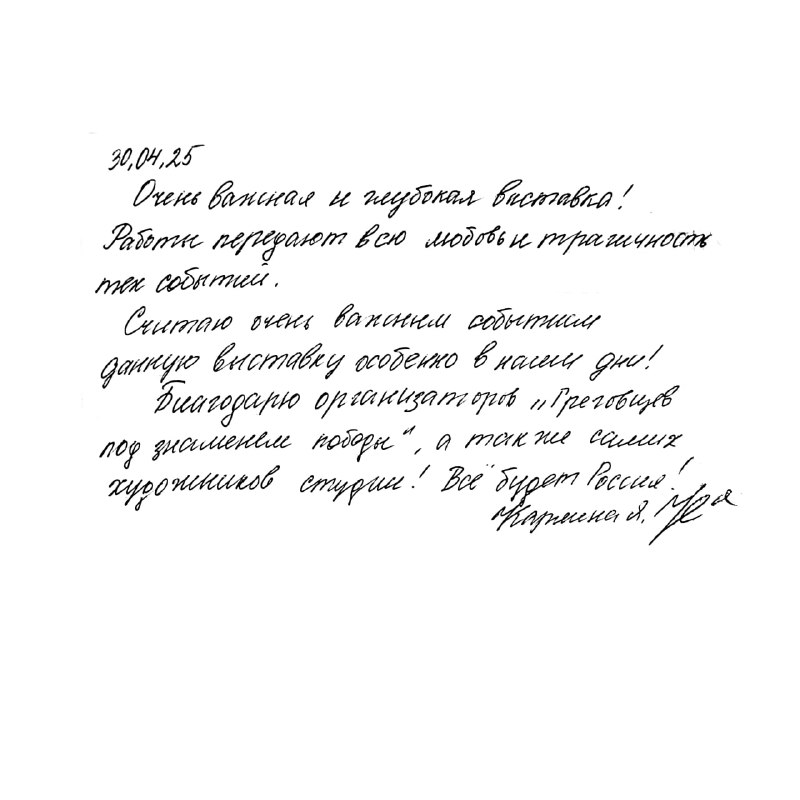 30,04,25
Очень важная и глубокая выставка!
Работы передают всю любовь и трагичность
тех событий.
Считаю очень важным событием
данную выставку особенно в наши дни!
Благодарю организаторов „Греговцев
под знаменем победы“, а также самих
художников студии! Всё будет Россия!
Кармина Я.